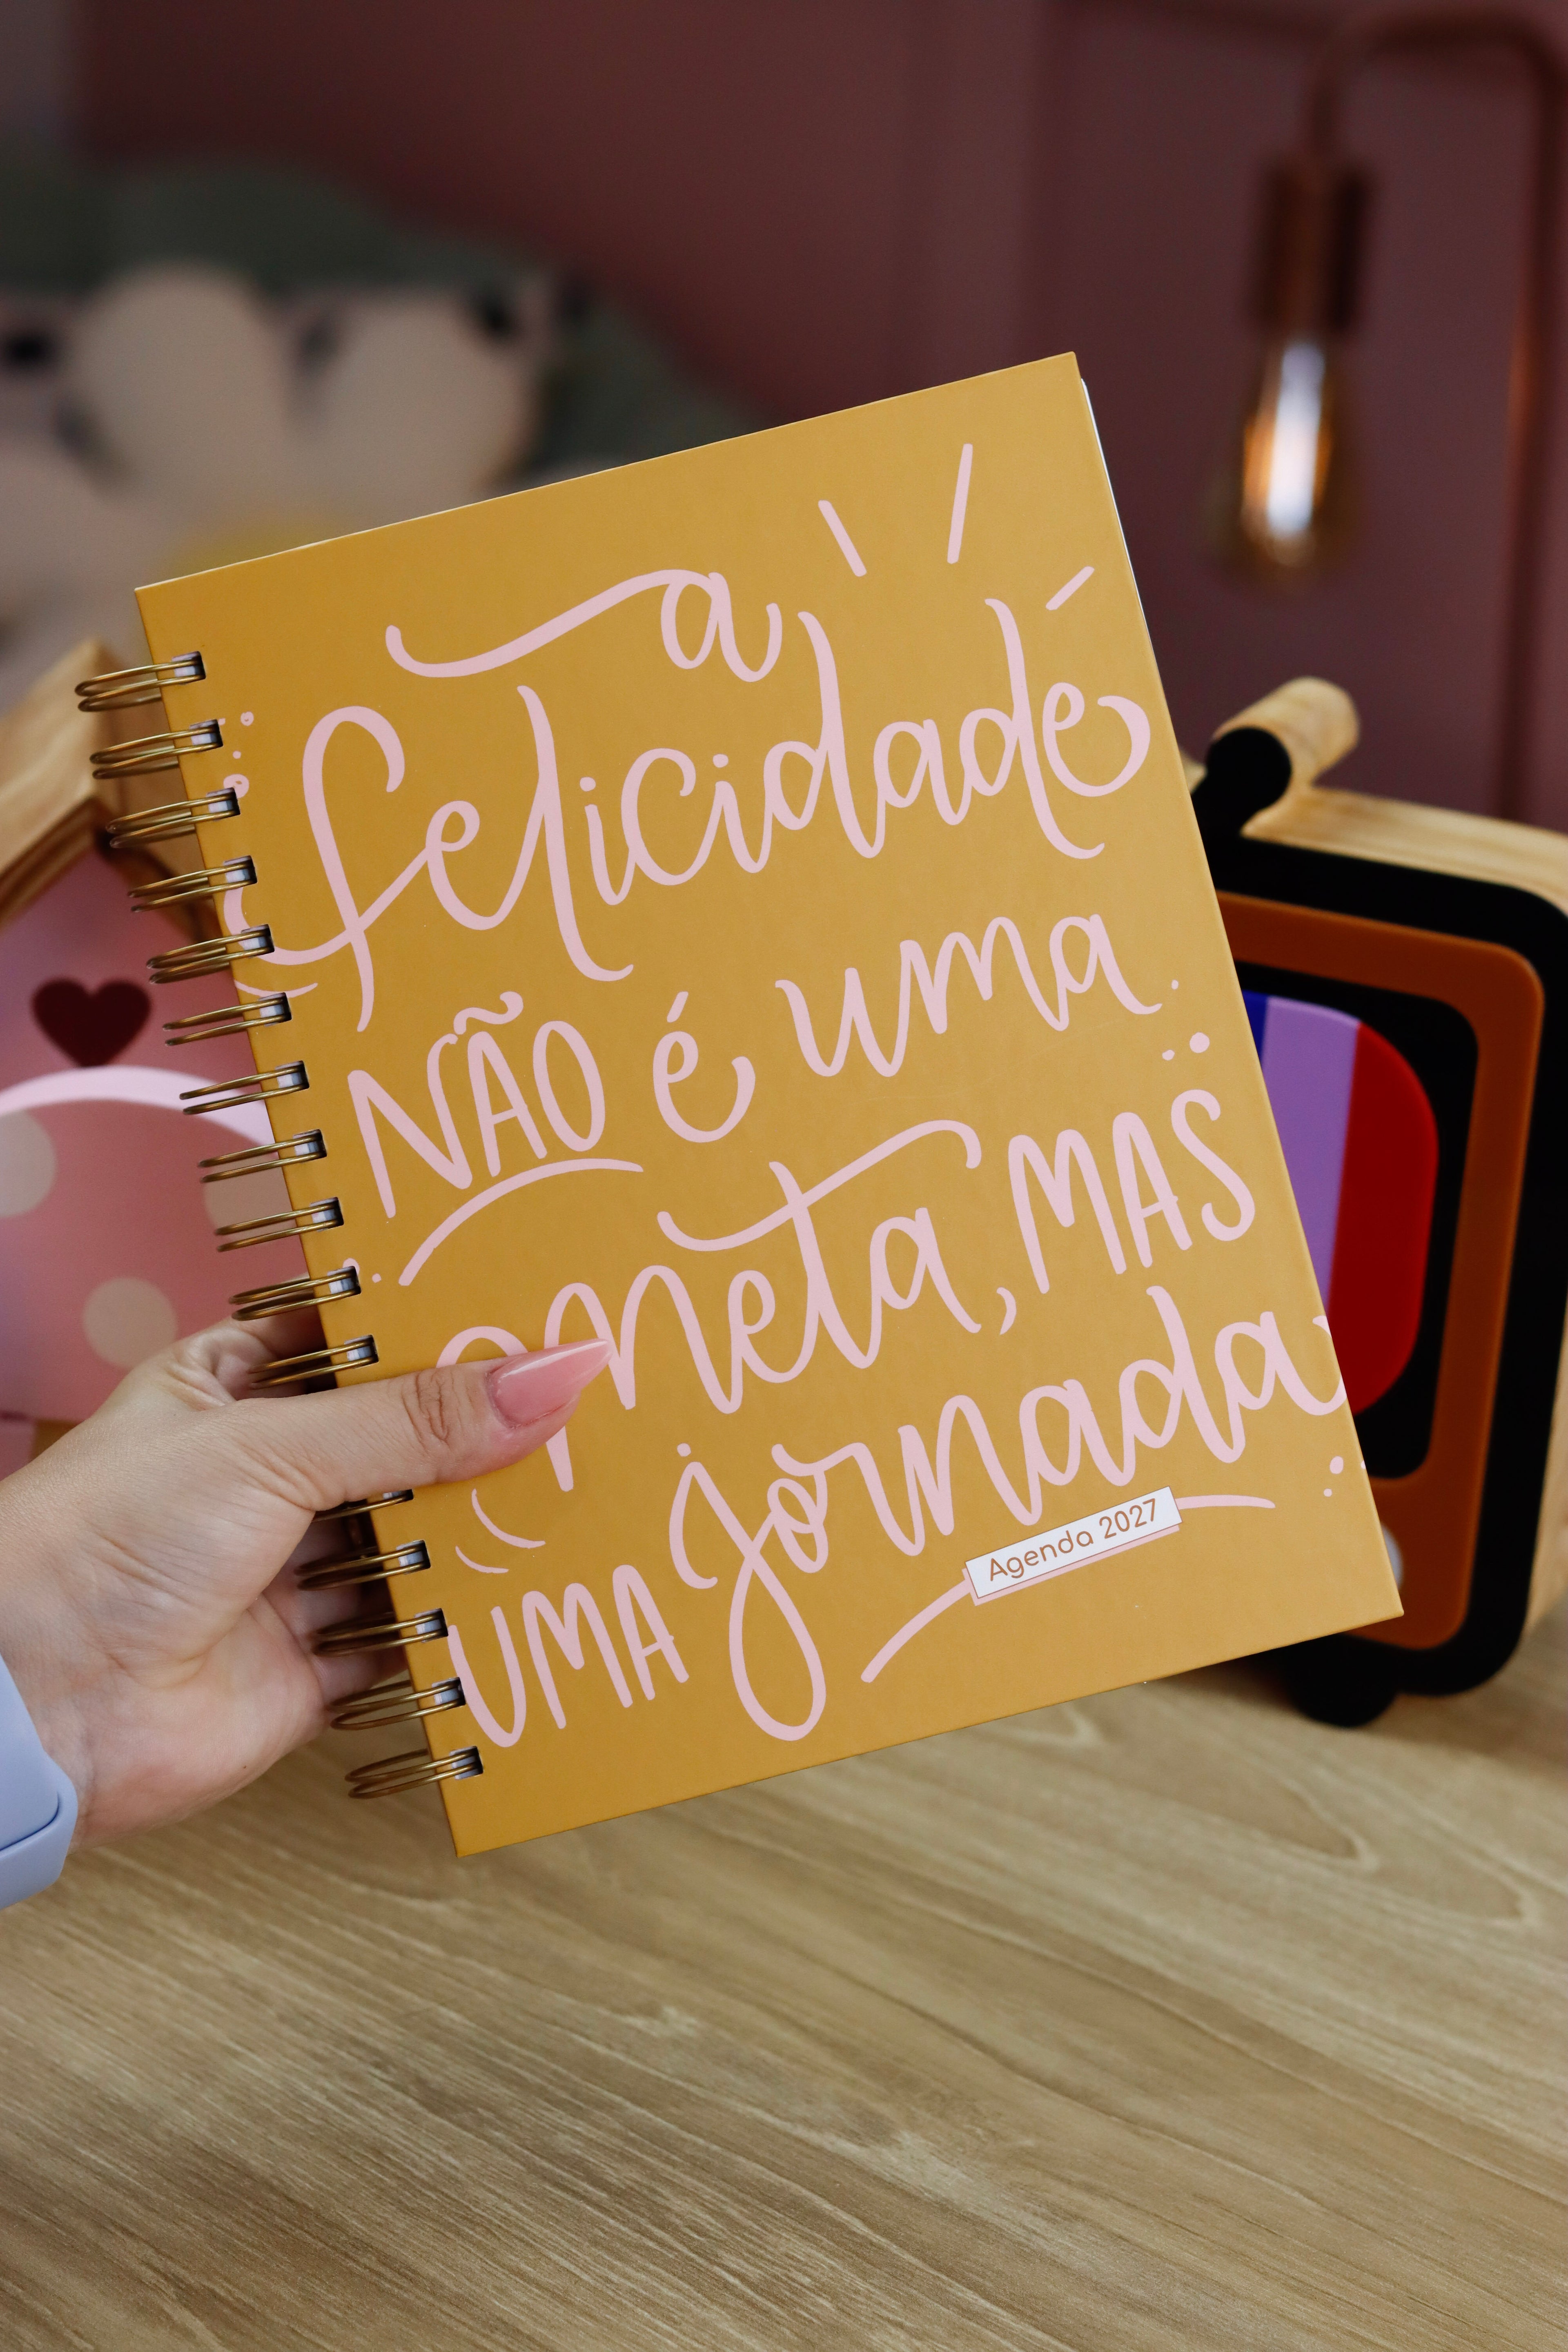 a
felicidade
NÃO é uma
meta, MAS
UMA jornada
Agenda 2027